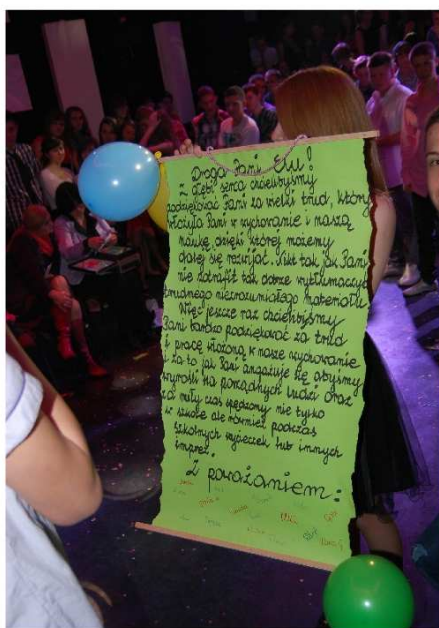 Droga Pani Ewo!
Z głębi serca chcielibyśmy
podziękować Pani za wielki trud, który
włożyła Pani w wychowanie i naszą
naukę dzięki której możemy
dalej się rozwijać. Nikt tak jak Pani
nie potrafił tak dobrze wytłumaczyć
trudnego niezrozumiałego materiału.
Więc jeszcze raz chcielibyśmy
Pani bardzo podziękować za trud
i pracę włożoną w nasze wychowanie
i za to jak Pani angażuje się abyśmy
wyrośli na porządnych ludzi oraz
za miły czas spędzony nie tylko
w szkole ale również podczas
szkolnych wycieczek lub innych
imprez.
Z poważaniem: